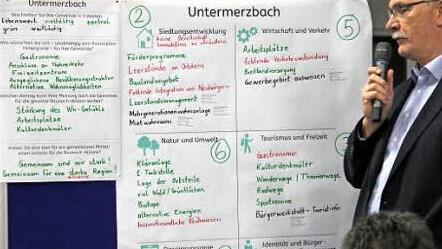 Untermerzbach
Beschreiben Sie Ihre Gemeinde in 5 Worten
Lebenswert vielfältig zentral
grün weitläufig
Gastronomie
Anschluss an Nahverkehr
Freizeitzentrum
Ausgeglichene Bevölkerungsstruktur
Alternative Wohnmöglichkeiten
Stärkung des Wir-Gefühls
Arbeitsplätze
Kulturdenkmäler
Gemeinsam sind wir stark!
Gemeinsam für eine starke Region!
Untermerzbach
2
Siedlungsentwicklung
keine Bereitschaft
Immobilien zu veräußern
Förderprogramme
Leerstände im Ortskern
Baulandangebot
Fehlende Integration von Neubürgern
Leerstandsmanagement
Mehrgenerationenwohnanlage
Mietwohnraum
5
Wirtschaft und Verkehr
Arbeitsplätze
fehlende Verkehrsanbindung
Breitbandversorgung
Gewerbegebiet ausweisen
6
Natur und Umwelt
Kläranlage
E-Tankstelle
Lage der Ortsteile
viel Wald / Grünflächen
Biotope
alternative Energien
3
Tourismus und Freizeit
Gastronomie
Kulturdenkmäler
Wanderwege / Themenwege
Radwege
Sportvereine
Bürgerwerkstatt - Touristinfo
Identität und Bürger-